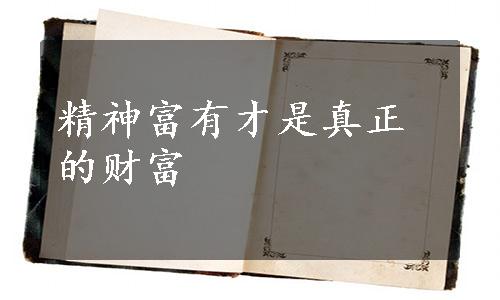 精神富有才是真正
的财富